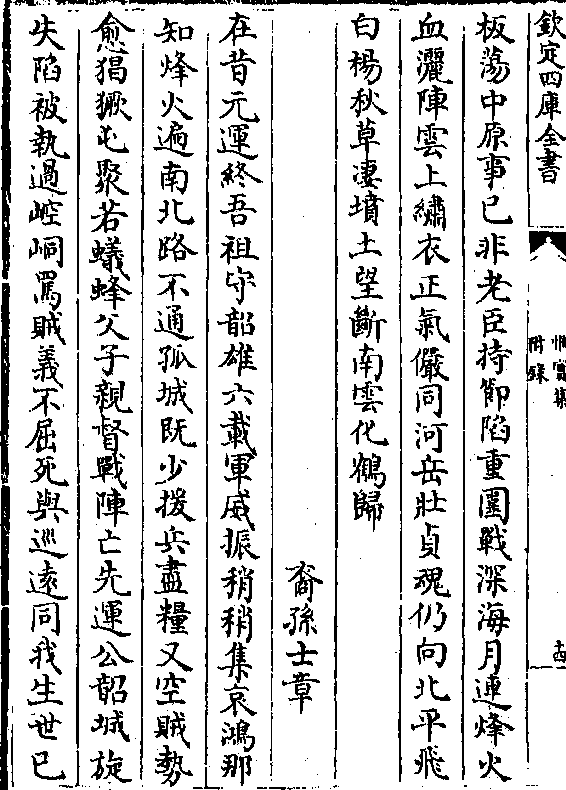 欽定四庫全書
附錄
十四
板蕩中原事已非老臣持節陷重圍戰深海月連烽火
血灑陣雲上繡衣正氣儼同河岳壯貞魂仍向北平飛
白楊秋草凄墳土望斷南雲化鶴歸
裔孫士章
在昔元運終吾祖守韶雄六載軍威振稍稍集哀鴻那
知烽火遍南北路不通孤城既少援兵盡糧又空賊勢
愈猖獗屯聚若蟻蜂父子親督戰陣亡先運公韶城旋
失陷被執過崆峒罵賊義不屈死與巡遠同我生世已